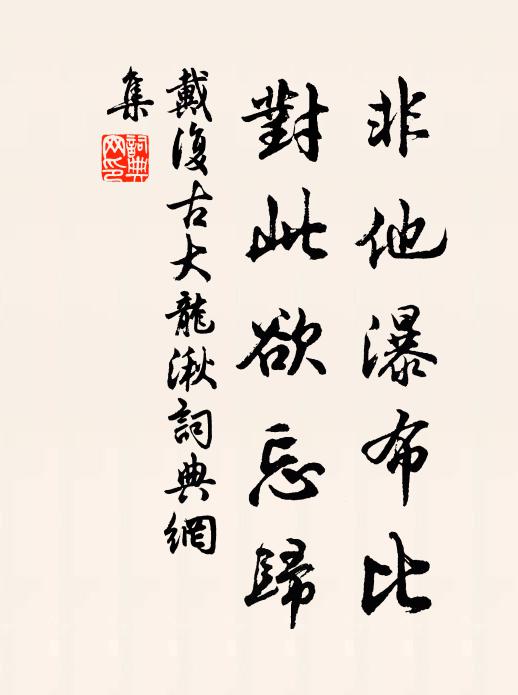 非他瀑布比
對此欲忘歸
戴復古大龍湫詞典網
集
詞典
网印